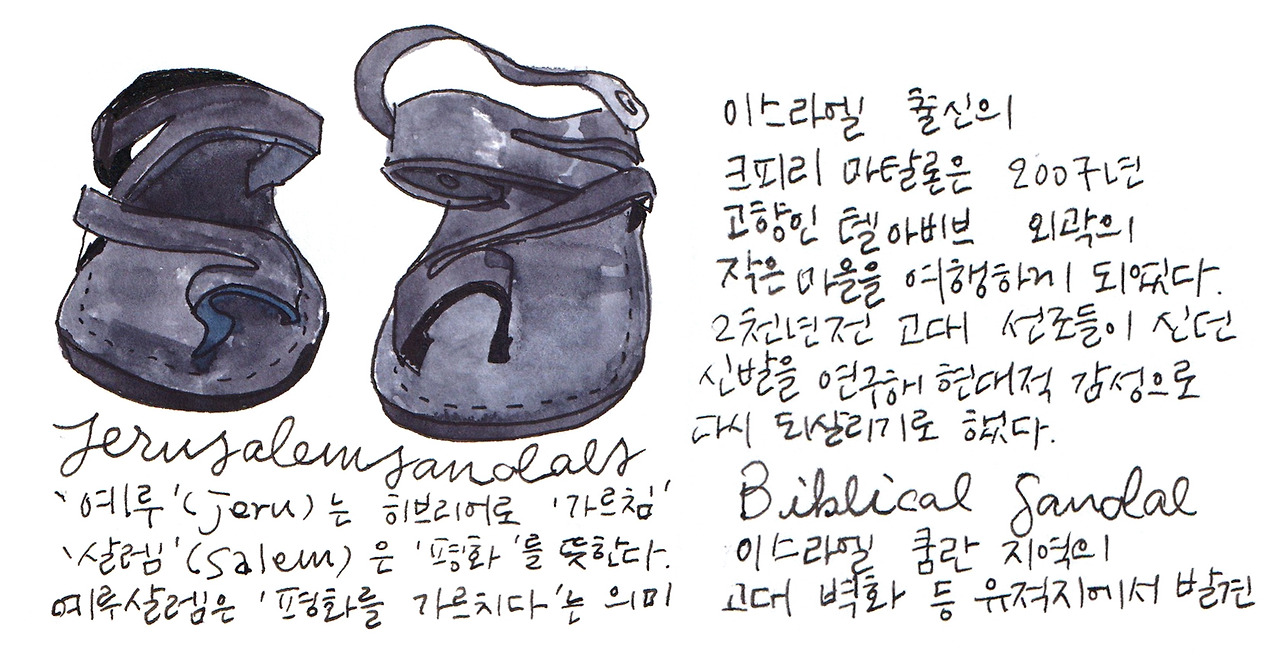 Jerusalem sandals
'예루'(jeru)는 히브리어로 '가르침'
'살렘'(Salem)은 '평화'를 뜻한다.
예루살렘은 '평화를 가르치다'는 의미
이스라엘 출신의
크피리 마탈론은 2007년
고향인 텔아비브 외곽의
작은 마을을 여행하게 되었다.
2천년전 고대 선조들이 신던
신발을 연구해 현대적 감성으로
다시 되살리기로 했다.
Biblical Sandal
이스라엘 쿰란 지역의
고대 벽화 등 유적지에서 발견